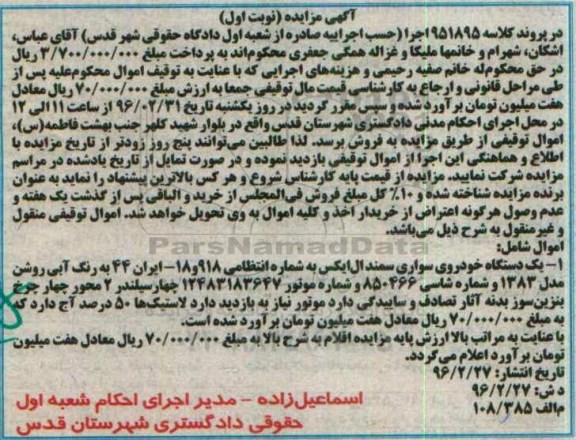 آگهی مزایده (نوبت اول)
در پرونده کلاسه ۹۵۱۸۹۵ اجرا (حسب اجراییه صادره از شعبه اول دادگاه حقوقی شهر قدس) آقای عباس،
اشکان، شهرام و خانمها ملیکا و غزاله همگی جعفری محکوم‌اند به پرداخت مبلغ ۳/۷۰۰/۰۰۰/۰۰۰ ریال
در حق محکوم‌له خانم صفیه رحیمی و هزینه‌های اجرایی که با عنایت به توقیف اموال محکوم‌علیه پس از
طی مراحل قانونی و ارجاع به کارشناسی قیمت مال توقیفی جمعا به ارزش مبلغ ۷۰/۰۰۰/۰۰۰ ریال معادل
هفت میلیون تومان برآورد شده و سپس مقرر گردید در روز یکشنبه تاریخ ۹۶/۰۲/۳۱ از ساعت ۱۱ الی ۱۲
در محل اجرای احکام مدنی دادگستری شهرستان قدس واقع در بلوار شهید کلهر جنب بهشت فاطمه(س)،
اموال توقیفی از طریق مزایده به فروش برسد. لذا طالبین می‌توانند پنج روز زودتر از تاریخ مزایده با
اطلاع و هماهنگی این اجرا از اموال توقیفی بازدید نموده و در صورت تمایل از تاریخ یادشده در مراسم
مزایده شرکت نمایید. مزایده از قیمت پایه کارشناس شروع و هر کس بالاترین پیشنهاد را نماید به عنوان
برنده مزایده شناخته شده و ۱۰٪ کل مبلغ فروش فی‌المجلس از خرید و الباقی پس از گذشت یک هفته و
عدم وصول هرگونه اعتراض از خریدار اخذ و کلیه اموال به وی تحویل خواهد شد. اموال توقیفی منقول
و غیرمنقول به شرح ذیل می‌باشد.
اموال شامل:
ParsNamadData
۱- یک دستگاه خودروی سواری سمند ال‌ایکس به شماره انتظامی ۹۱۸و۱۸- ایران ۴۴ به رنگ آبی روشن
مدل ۱۳۸۳ و شماره شاسی ۸۵۰۴۶۶ و شماره موتور ۱۲۴۸۳۱۸۳۶۴۷ چهارسیلندر ۲ محور چهار چرخ
بنزین‌سوز بدنه آثار تصادف و ساییدگی دارد موتور نیاز به بازدید دارد لاستیک‌ها ۵۰ درصد آج دارد که
به مبلغ ۷۰/۰۰۰/۰۰۰ ریال معادل هفت میلیون تومان برآورد شده است.
با عنایت به مراتب بالا ارزش پایه مزایده اقلام به شرح بالا به مبلغ ۷۰/۰۰۰/۰۰۰ ریال معادل هفت میلیون
تومان برآورد اعلام می‌گردد.
تاریخ انتشار: ۹۶/۲/۲۷
د ش: ۹۶/۲/۲۷
م الف ۱۰۸/۳۸۵
اسماعیل‌زاده - مدیر اجرای احکام شعبه اول
حقوقی دادگستری شهرستان قدس